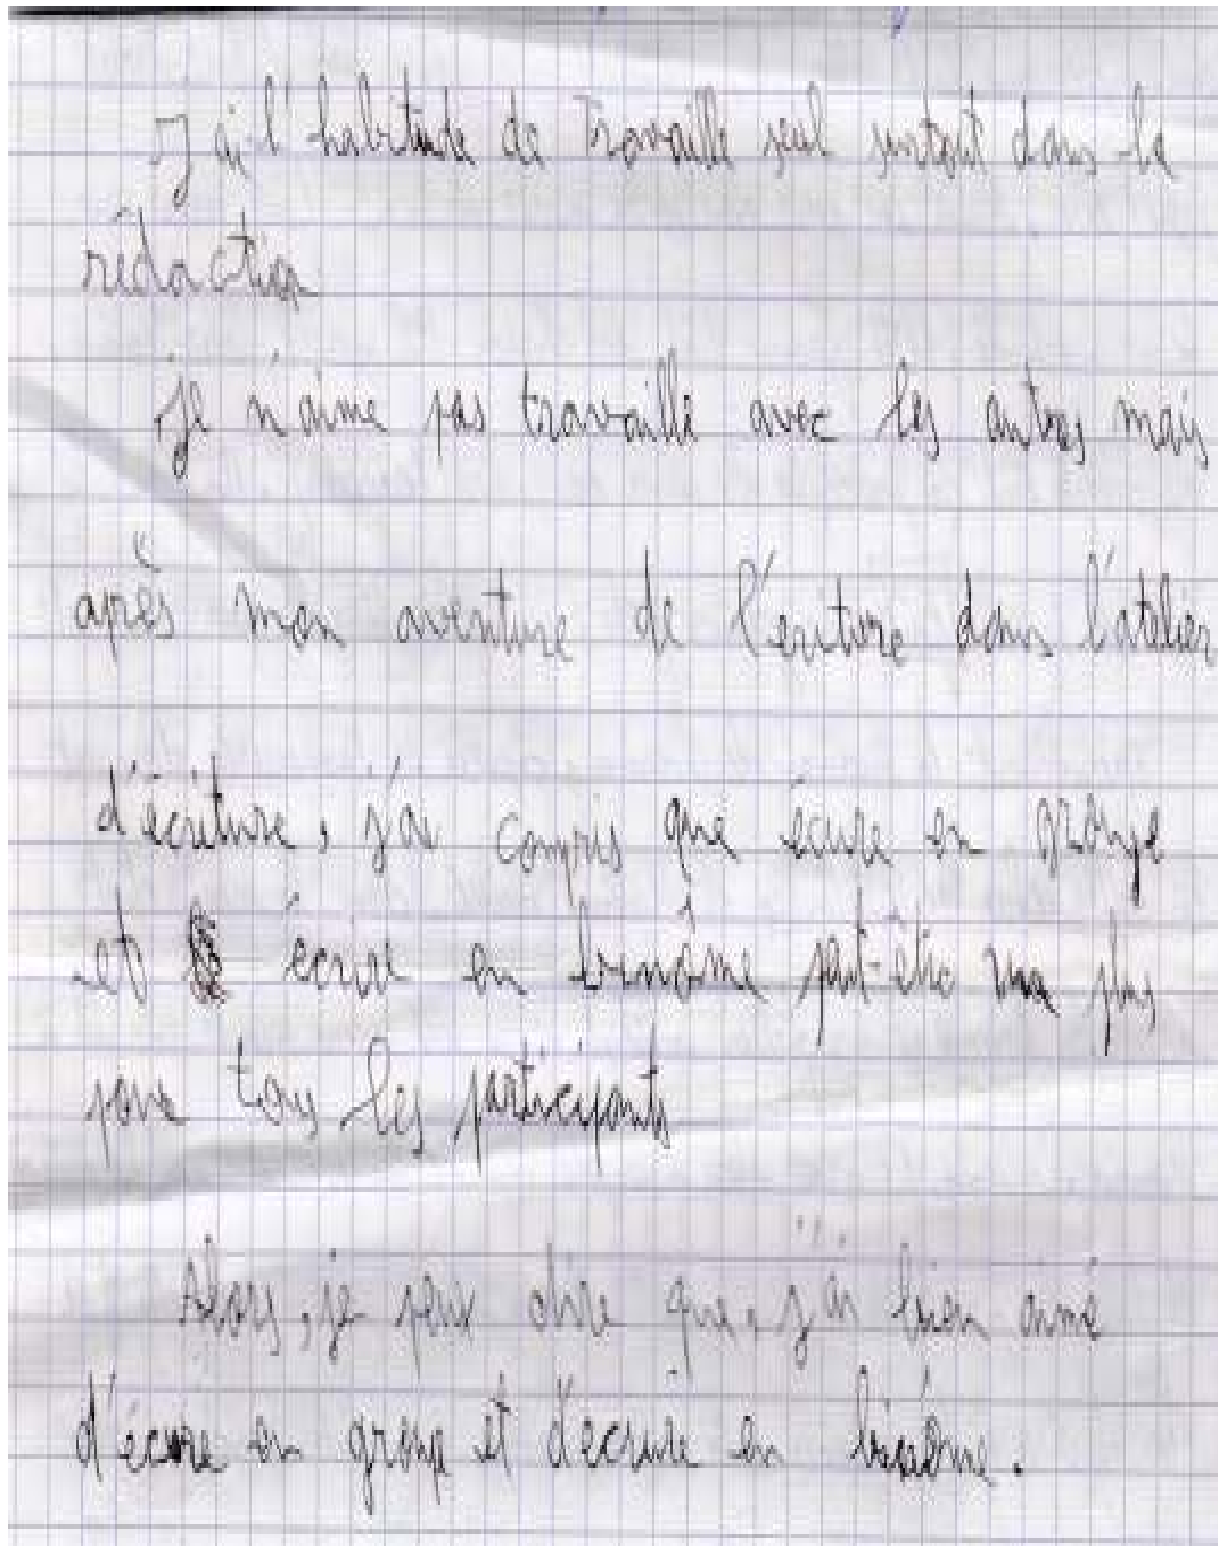 J'ai l'habitude de Travaille seul surtout dans la
rédaction
Je n'aime pas travaille avec les autres mais
après mon aventure de l'ecriture dans l'atelier
d'écriture, j'ai compris que écrire en groupe
et écrire en binôme peut-être plus
pour tous les participants
Alors, je peux dire que, j'ai bien aimé
d'écrire en groupe et d'ecrire en binôme.